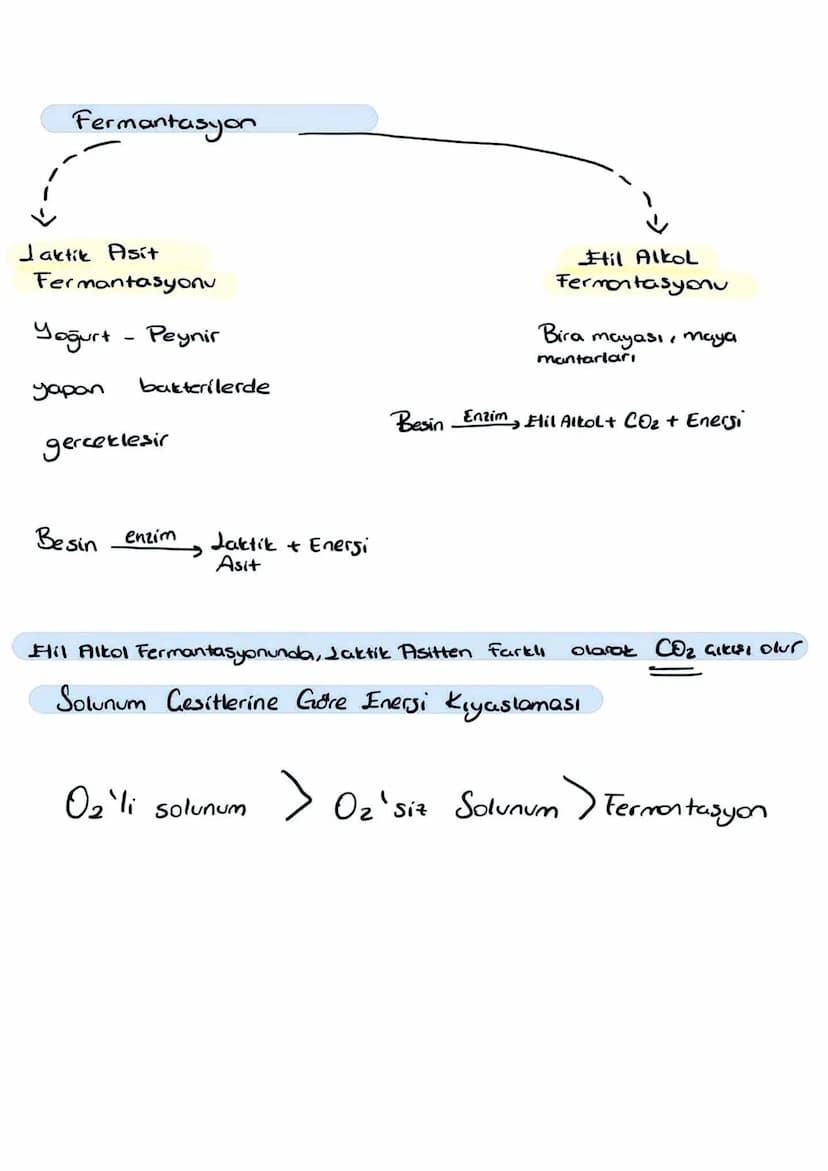 Fermantasyon
Laktik Asit
Fermantasyonu
Yoğurt - Peynir
yapan bakterilerde
gerceklesir
Besin enzim Laktik + Enerji
Asit
Etil Alkol
Fermontasyonu
Bira mayası, maya
mantarları
Besin Enzim Etil Alkol + CO₂ + Enerji
Etil Alkol Fermantasyonunda, Laktik Asitten Farklı olarak CO₂ Gıkısı olur
Solunum Cesitlerine Göre Enerji Kıyaslaması
O₂'li solunum > O₂'siz Solunum > Fermontasyon